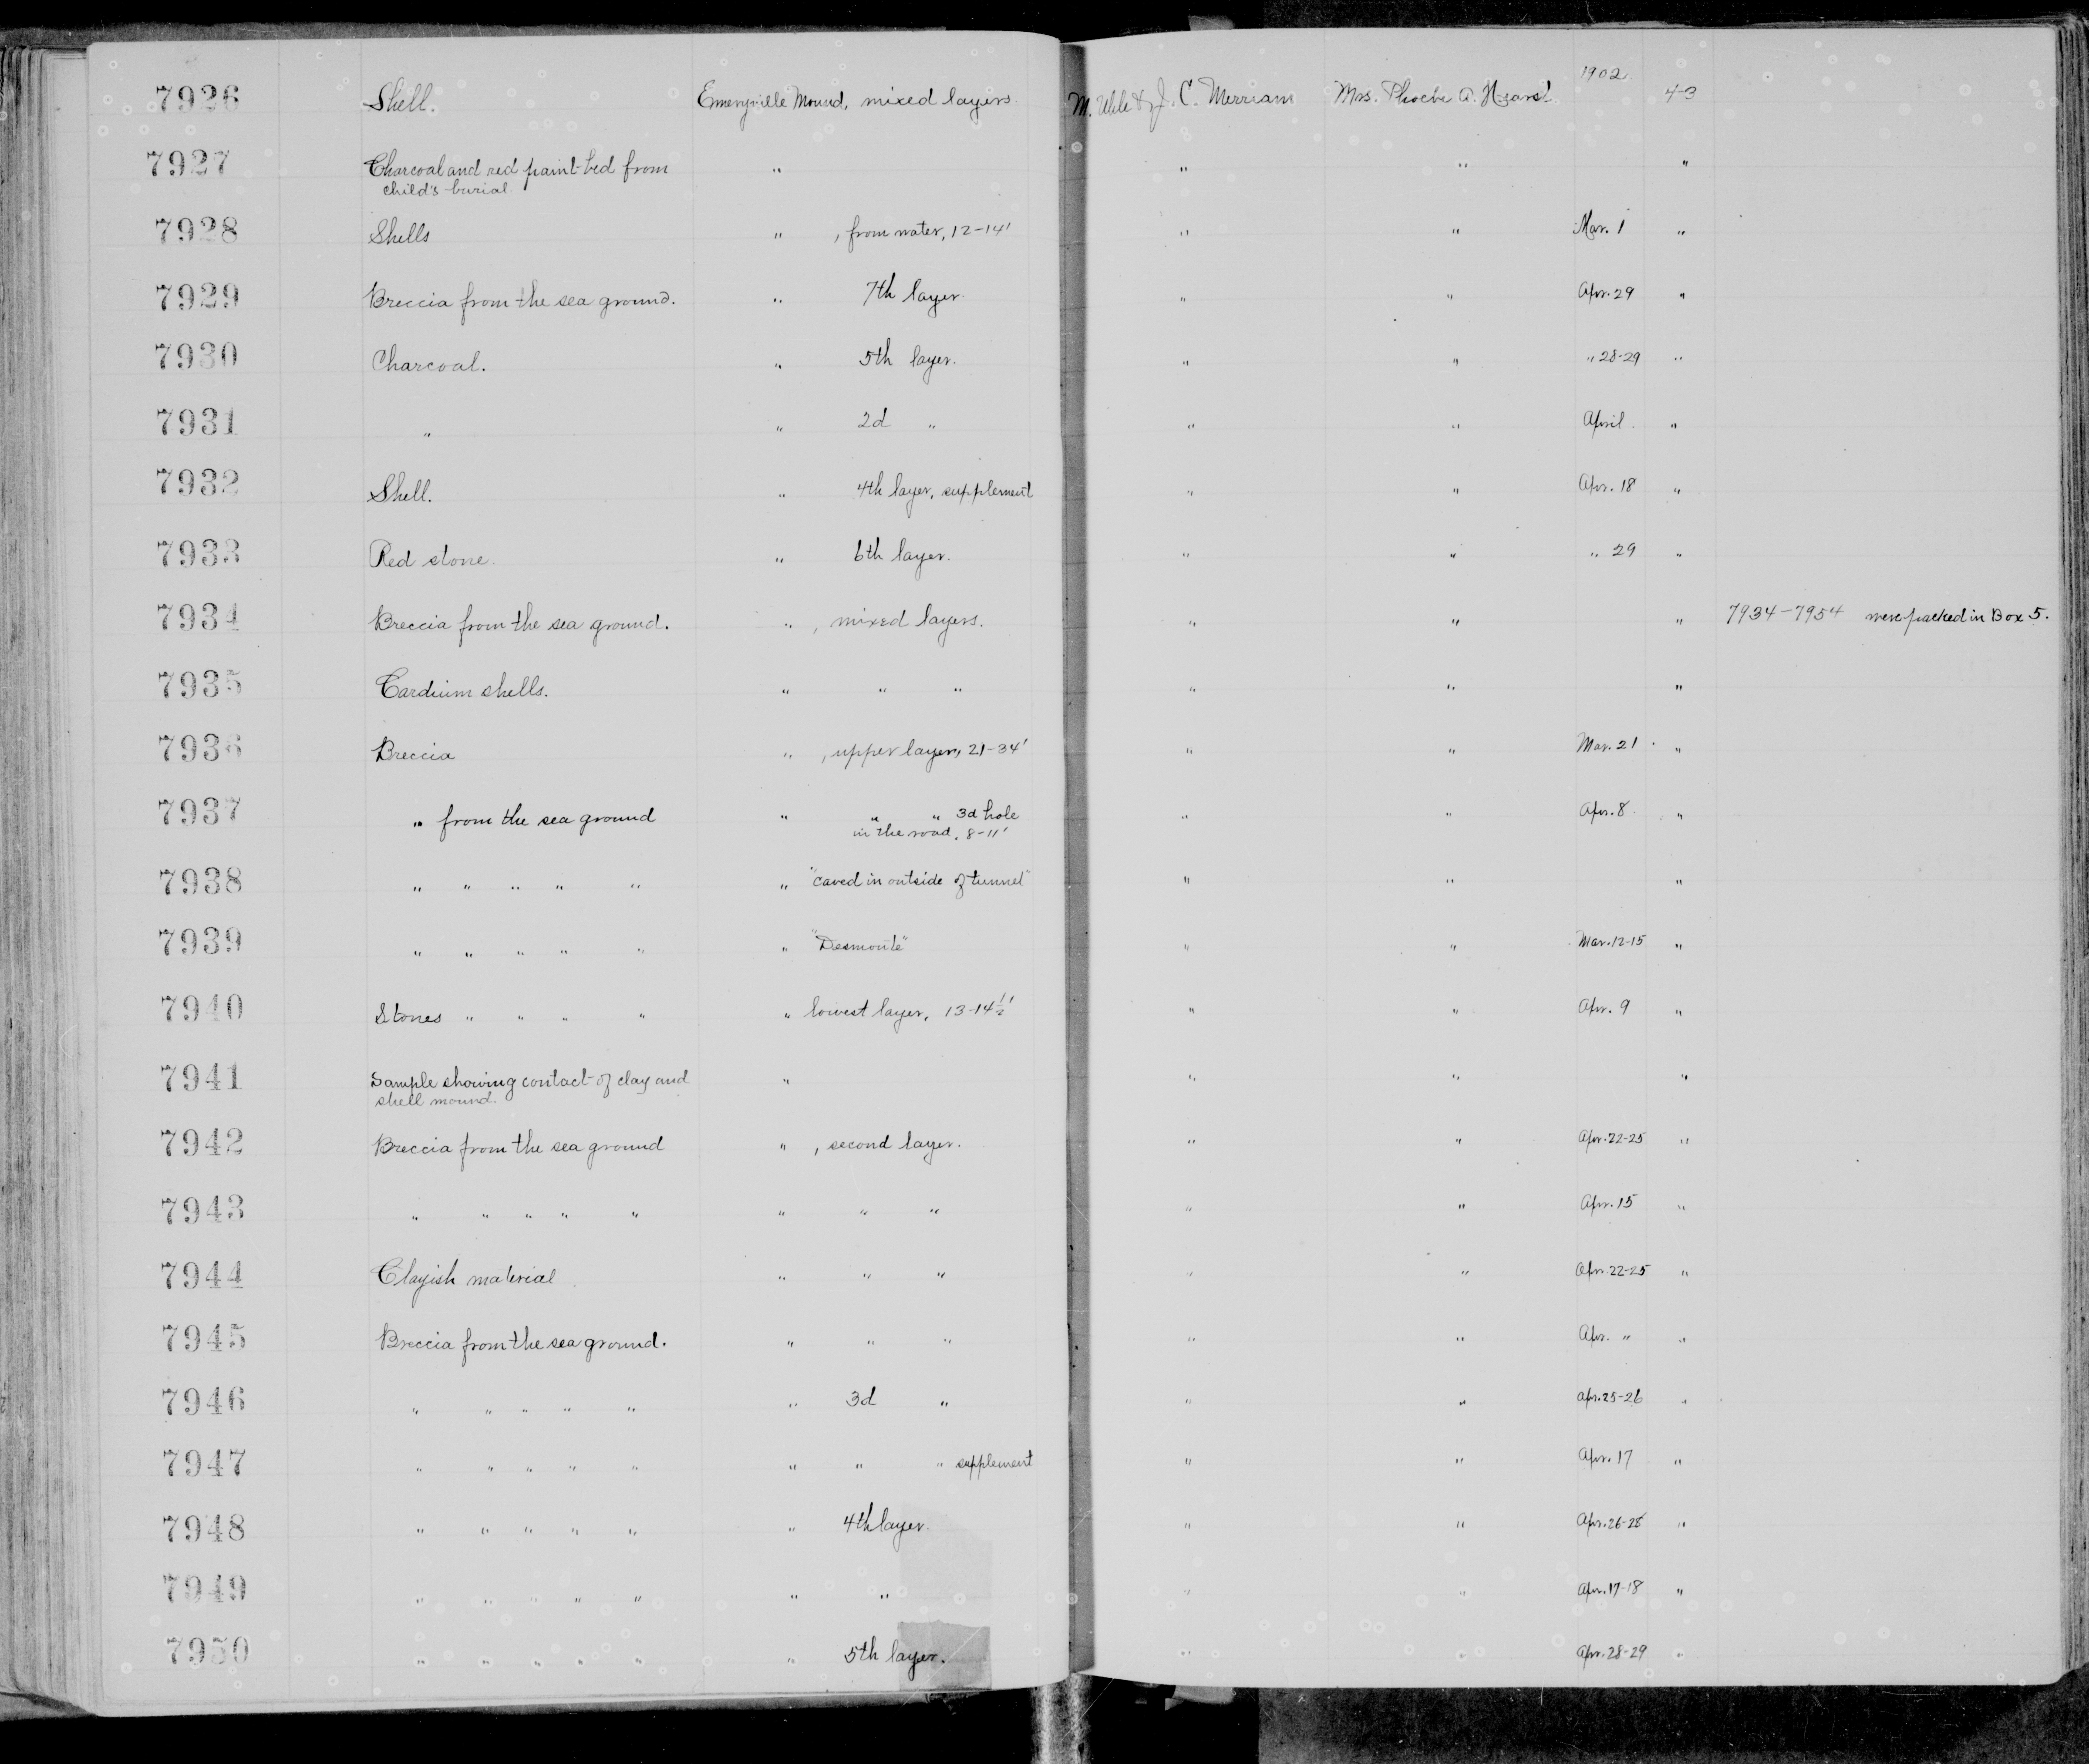 1902
7926 Shell. Emeryville Mound, mixed layers. M. Uhle & J. C. Merriam Mrs. Phoebe A. Hearst 4-3
7927 Charcoal and red paint-bed from " " " "
child's burial.
7928 Shells " , from water, 12-14' " " Mar. 1 "
7929 Breccia from the sea ground. " 7th layer. " " Apr. 29 "
7930 Charcoal. " 5th layer. " " " 28-29 "
7931 " " 2d " " " April. "
7932 Shell. " 4th layer, supplement " " Apr. 18 "
7933 Red stone. " 6th layer. " " " 29 "
7934 Breccia from the sea ground. " , mixed layers. " " " 7934-7954 were packed in Box 5.
7935 Cardium shells. " " " " " "
7936 Breccia " , upper layer, 21-34' " " Mar. 21 "
7937 " from the sea ground " " " 3d hole " " Apr. 8 "
in the road, 8-11'
7938 " " " " " " "caved in outside of tunnel" " " "
7939 " " " " " " "Desmonte" " " Mar. 12-15 "
7940 Stones " " " " " lowest layer, 13-14½' " " Apr. 9 "
7941 Sample showing contact of clay and " " " "
shell mound.
7942 Breccia from the sea ground " , second layer. " " Apr. 22-25 "
7943 " " " " " " " " " " Apr. 15 "
7944 Clayish material " " " " " Apr. 22-25 "
7945 Breccia from the sea ground. " " " " " Apr. " "
7946 " " " " " " 3d " " " Apr. 25-26 "
7947 " " " " " " " " supplement " " Apr. 17 "
7948 " " " " " " 4th layer. " " Apr. 26-28 "
7949 " " " " " " " " " Apr. 17-18 "
7950 " " " " " " 5th layer. " " Apr. 28-29 "